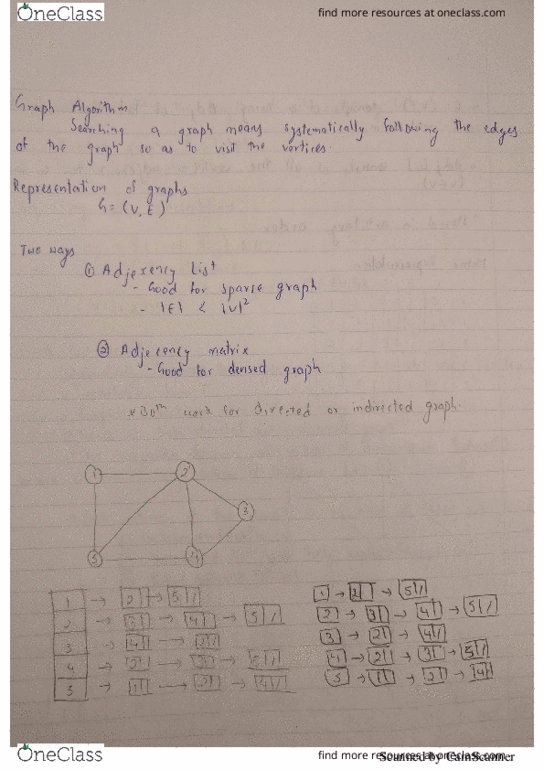 OneClass
find more resources at oneclass.com
Graph Algorithm
Searching a graph means systematically following the edges
of the graph so as to visit the vertices.
Representation of graphs
G = (V, E)
Two ways
① Adjecency list
- Good for sparse graph
- |E| < |V|²
② Adjecency matrix
- Good for densed graph
* Both work for directed or indirected graph.
1 2
3
5 4
1 → 2 → 5 /
2 → 3 → 4 → 5 /
3 → 4 → 2 /
4 → 2 → 3 → 5 /
5 → 1 → 2 → 4 /
1 → 2 → 5 /
2 → 3 → 4 → 5 /
3 → 2 → 4 /
4 → 2 → 3 → 5 /
5 → 1 → 2 → 4
OneClass
find more resources at oneclass.com
Scanned by CamScanner